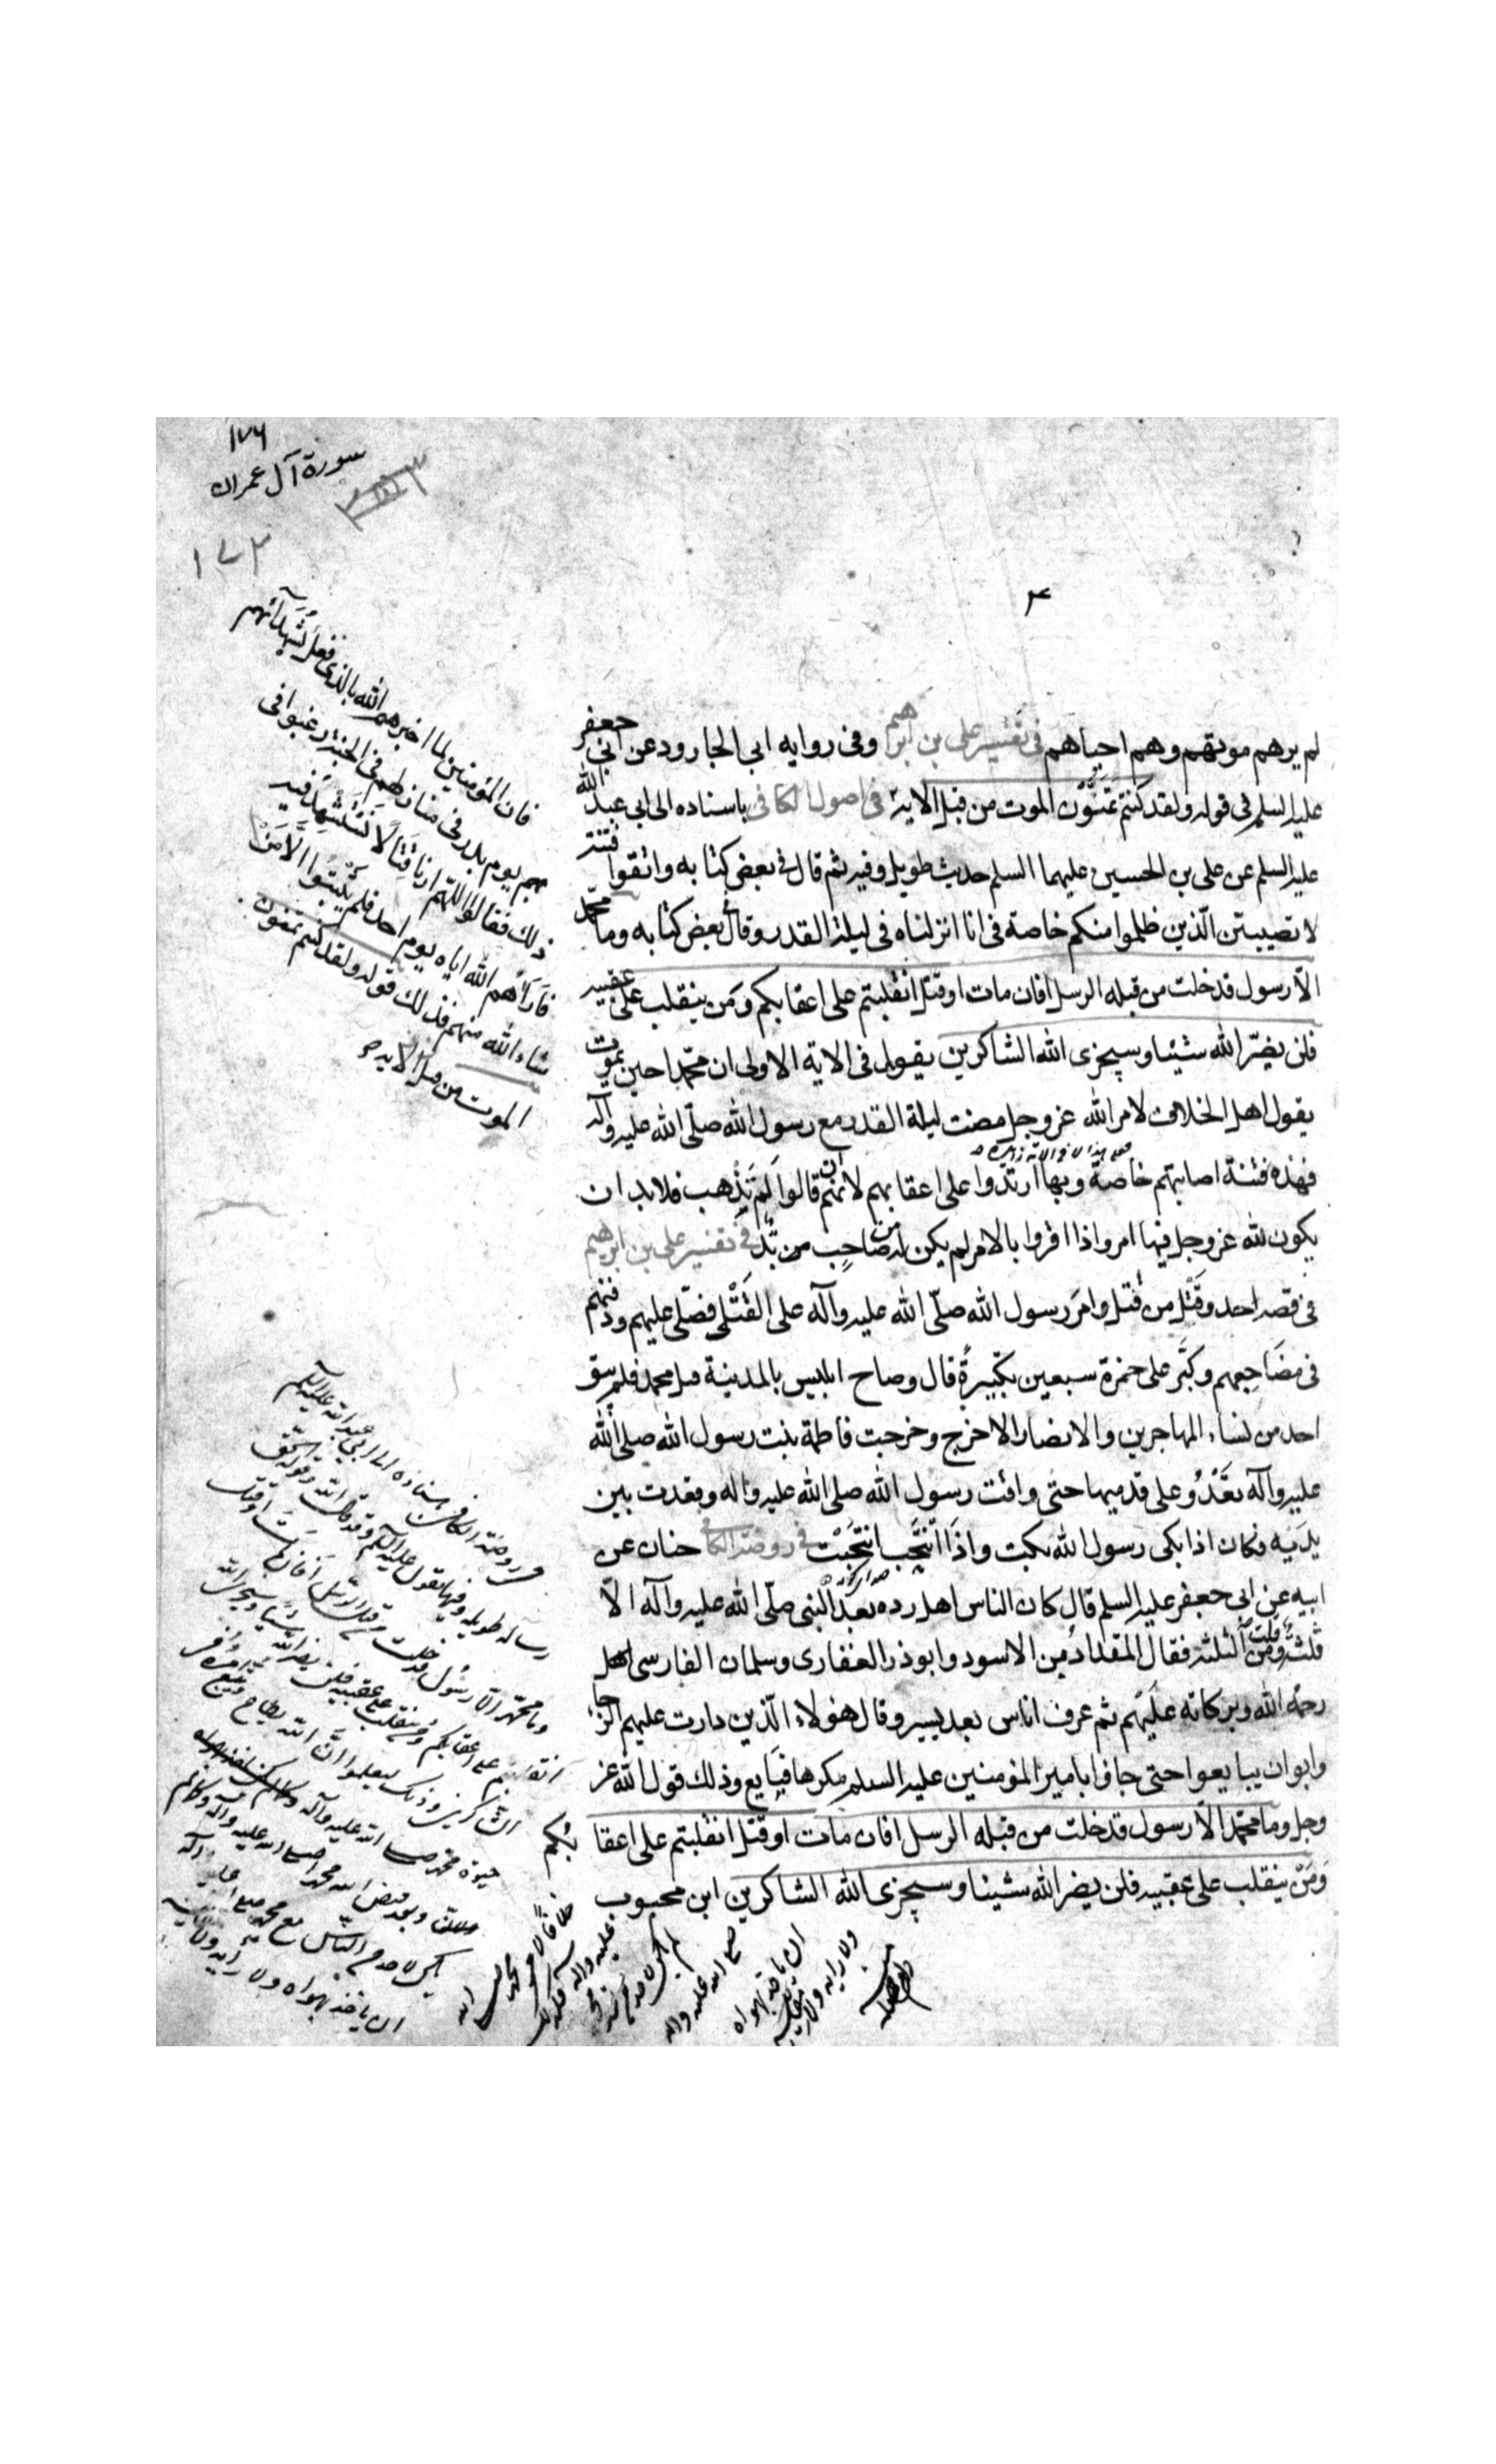 ١٧٦
سورة آل عمران
١٧٣
لم يرهم موتهم وهم احياهم في تفسير علي بن ابرهيم وفي روايه ابي الجارود عن ابي جعفر
عليه السلم في قوله ولقد كنتم تمنون الموت من قبل الاية في اصول الكافي باسناده الى ابي عبد الله
عليه السلم عن علي بن الحسين عليهما السلم حديث طويل وفيه ثم قال في بعض كتابه واتقوا فتنة
لا تصيبن الذين ظلموا منكم خاصة في انا انزلناه في ليلة القدر وقال في بعض كتابه وما محمد
الّا رسول قد خلت من قبله الرسل افان مات او قتل انقلبتم على اعقابكم ومن ينقلب على عقبيه
فلن يضرّ الله شيئا وسيجزى الله الشاكرين يقول في الاية الاولى ان محمّدا حين يموت
يقول اهل الخلاف لامر الله عز وجل مضت ليلة القدر مع رسول الله صلّى الله عليه وآله
فهذه فتنة اصابتهم خاصة وبها ارتدوا على اعقابهم لانهم ان قالوا لم تذهب فلا بد ان
يكون لله عز وجل فيها امر واذا اقروا بالامر لم يكن له من صاحب من بُدّ في تفسير علي بن ابرهيم
في قصه احد وقتل من قتل وامر رسول الله صلّى الله عليه وآله على القتلى فصلّى عليهم ودفنهم
في مضاجعهم وكبّر على حمزة سبعين تكبيرةً قال وصاح ابليس بالمدينة قتل محمد فلم يبق
احد من نساء المهاجرين والانصار الا خرج وخرجت فاطمة بنت رسول الله صلى الله
عليه وآله تعدو على قدميها حتى وافت رسول الله صلى الله عليه واله وقعدت بين
يديه فكان اذا بكى رسول الله بكت واذا انتحب انتحبت في روضة الكافي حنان عن
ابيه عن ابي جعفر عليه السلم قال كان الناس اهل رده بعد النبي صلّى الله عليه وآله الّا
ثلثة قلت ومن الثلثة فقال المقداد بن الاسود وابوذر الغفارى وسلمان الفارسى
رحمة الله وبركاته عليهم ثم عرف اناس بعد يسير وقال هؤلاء الّذين دارت عليهم الرحا
وابوا ان يبايعوا حتى جاؤا بامير المؤمنين عليه السلم مكرها فبايع وذلك قول الله عز
وجل وما محمّد الّا رسول قد خلت من قبله الرسل افان مات او قتل انقلبتم على اعقابكم
ومَنْ ينقلب على عقبيه فلن يضر الله شيئا وسيجزى الله الشاكرين ابن محبوب
فان المؤمنين لما اخبرهم الله بالذى فعل بشهدائهم
يوم بدر في منازلهم في الجنة رغبوا في
ذلك فقالوا اللهم ارنا قتالا نستشهد فيه
فاراهم الله اياه يوم احد فلم يثبتوا الّا من
شاء الله منهم فذلك قوله ولقد كنتم تمنون
الموت من قبل الاية
في روضة الكافي باسناده الى ابي عبد الله عليه السلم
رساله طويله وفيها يقول عليه السلم وقد قال الله وقوله الحق
وما محمّد الّا رسول قد خلت من قبله الرسل افان مات او قتل
انقلبتم على اعقابكم ومن ينقلب على عقبيه فلن يضر الله شيئا وسيجزى الله
الشاكرين وذلك ليعلموا انّ الله يطاع ويتبع امره في
حيوة محمّد صلى الله عليه وآله
وبعد قبض الله محمدا صلى الله عليه وآله وكما لم
يكن لاحد من الناس مع محمد صلى الله عليه وآله
ان ياخذ بهواه ولا رأيه ولا مقاييسه
خلافا لامر محمد صلى الله
عليه واله فكذلك
لم يكن لاحد من بعد محمد
صلى الله عليه واله
ان ياخذ بهواه
ولا رايه ولا مقاييسه